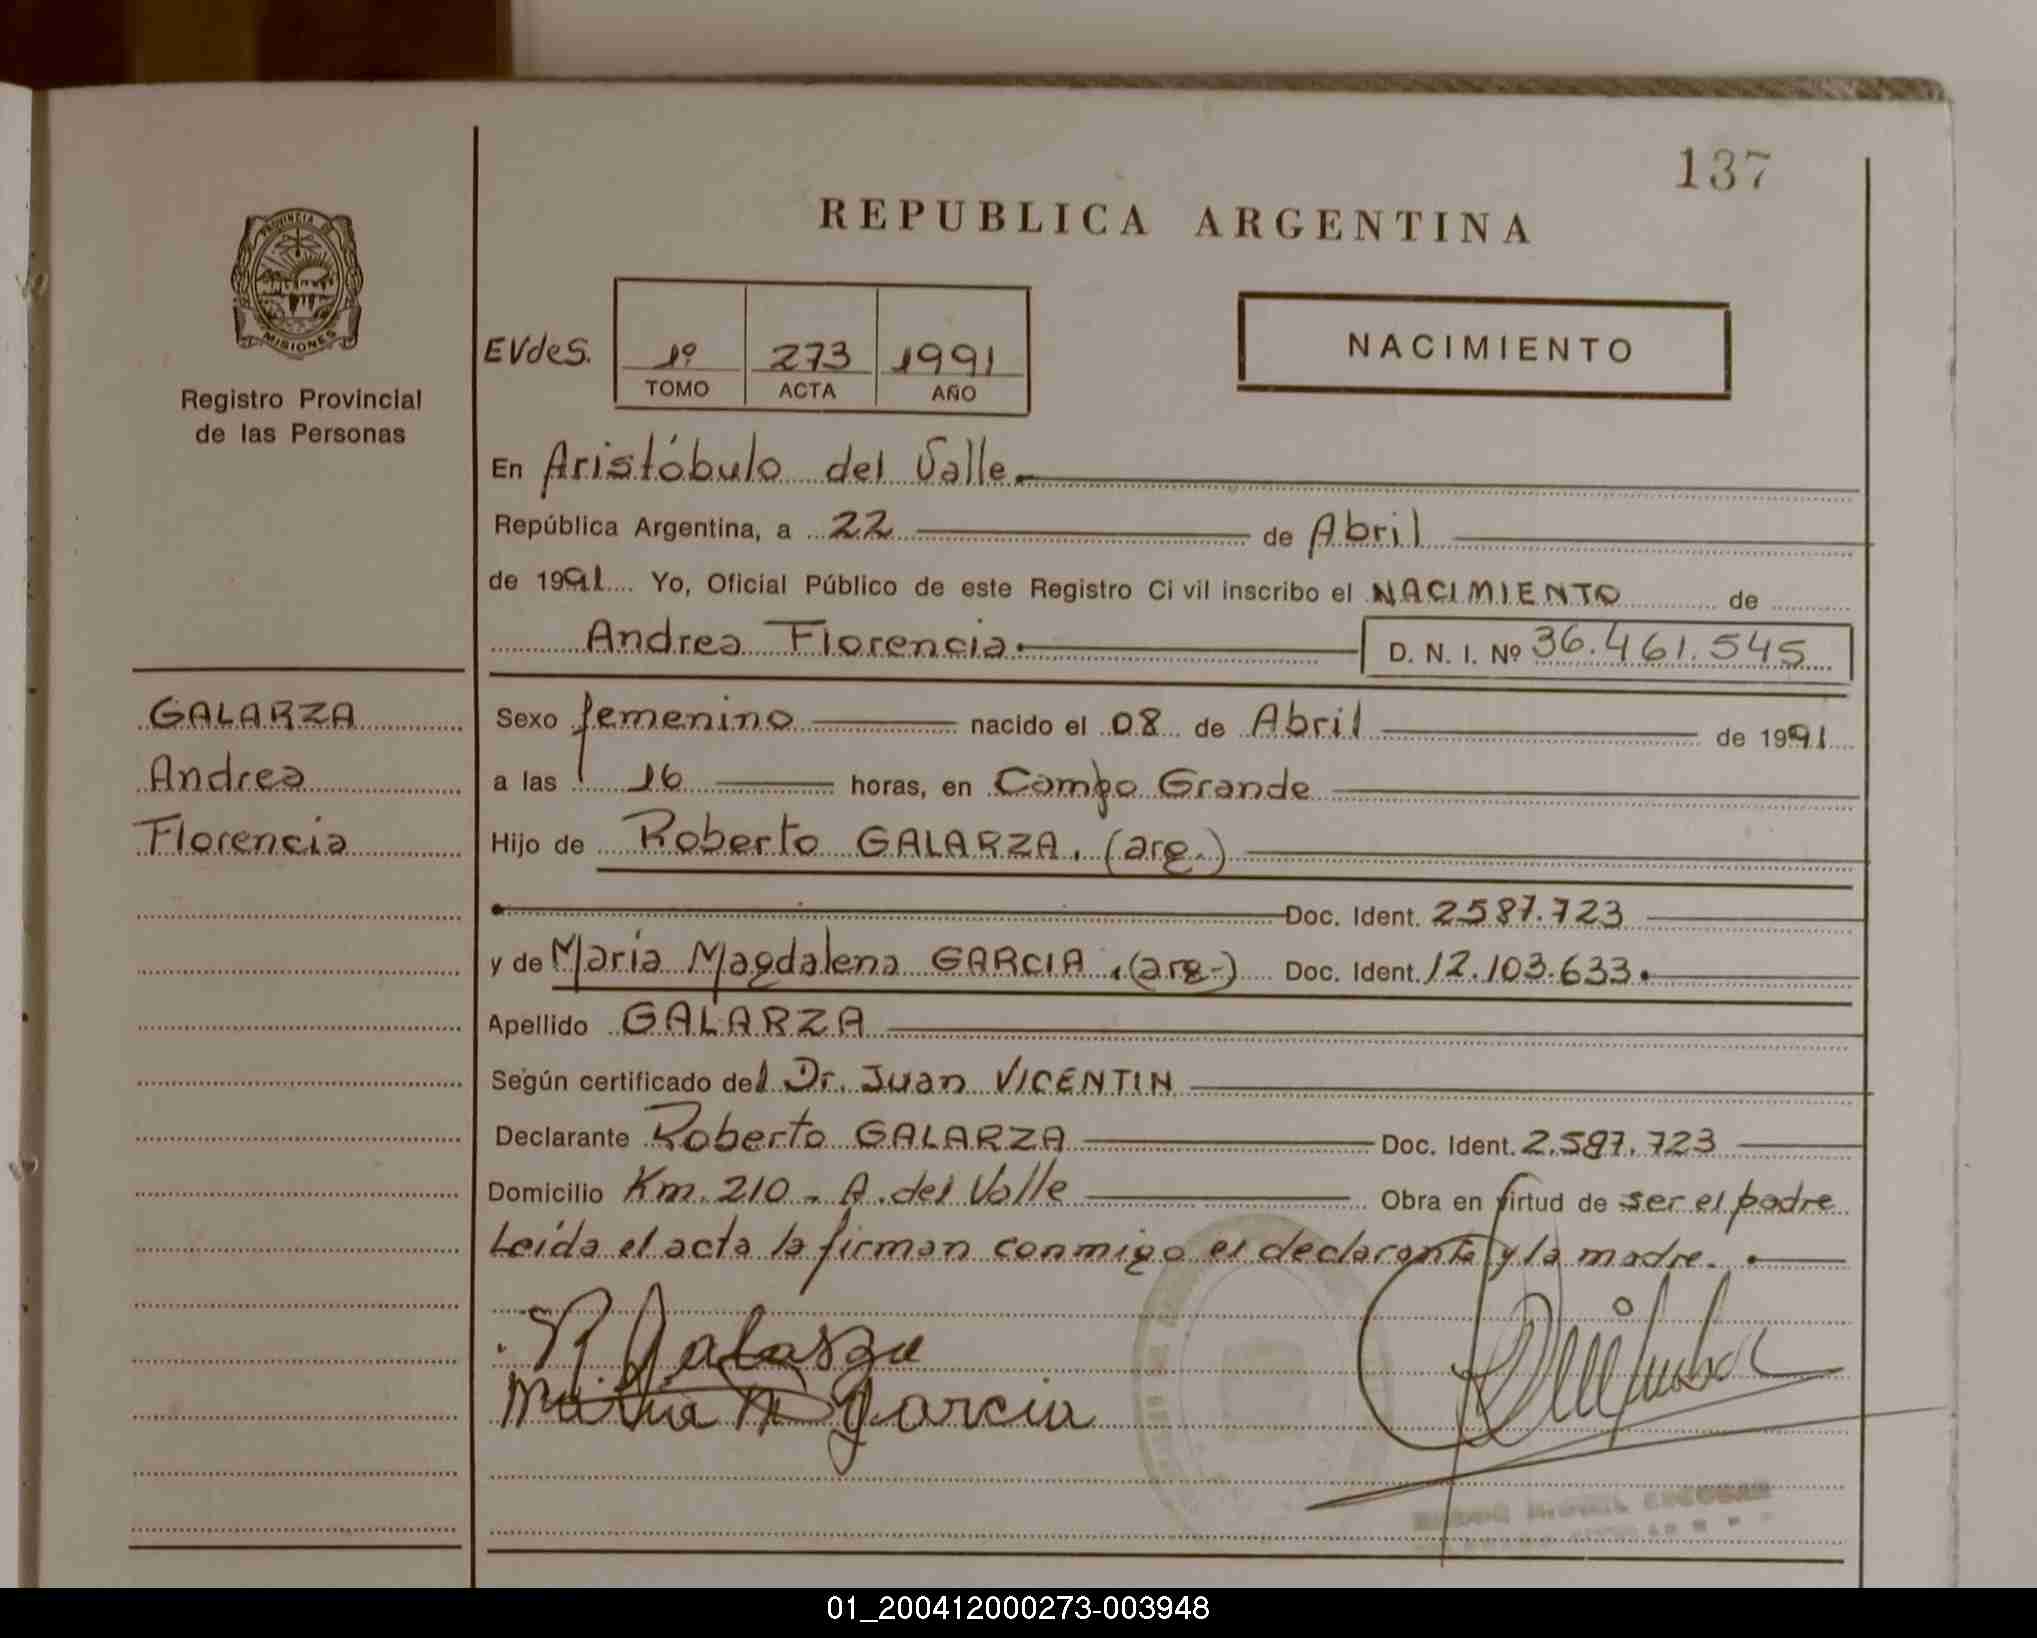 137
REPUBLICA ARGENTINA
PROVINCIA DE
MISIONES
Registro Provincial
de las Personas
EVdes. 1º 273 1991
TOMO ACTA AÑO
NACIMIENTO
En Aristóbulo del Valle.
República Argentina, a 22 de Abril
de 1991 Yo, Oficial Público de este Registro Ci vil inscribo el NACIMIENTO de
Andrea Florencia. D. N. I. Nº 36.461.545
GALARZA
Andrea
Florencia
Sexo femenino nacido el 08 de Abril de 1991
a las 16 horas, en Campo Grande
Hijo de Roberto GALARZA. (arg.)
Doc. Ident. 2587.723
y de María Magdalena GARCIA. (arg-) Doc. Ident. 12.103.633.
Apellido GALARZA
Según certificado del Dr. Juan VICENTIN
Declarante Roberto GALARZA Doc. Ident. 2.587.723
Domicilio Km. 210 - A. del Valle Obra en firtud de ser el padre
Leída el acta la firman conmigo el declarante y la madre.
R Galarza
Maria M Garcia
01_200412000273-003948